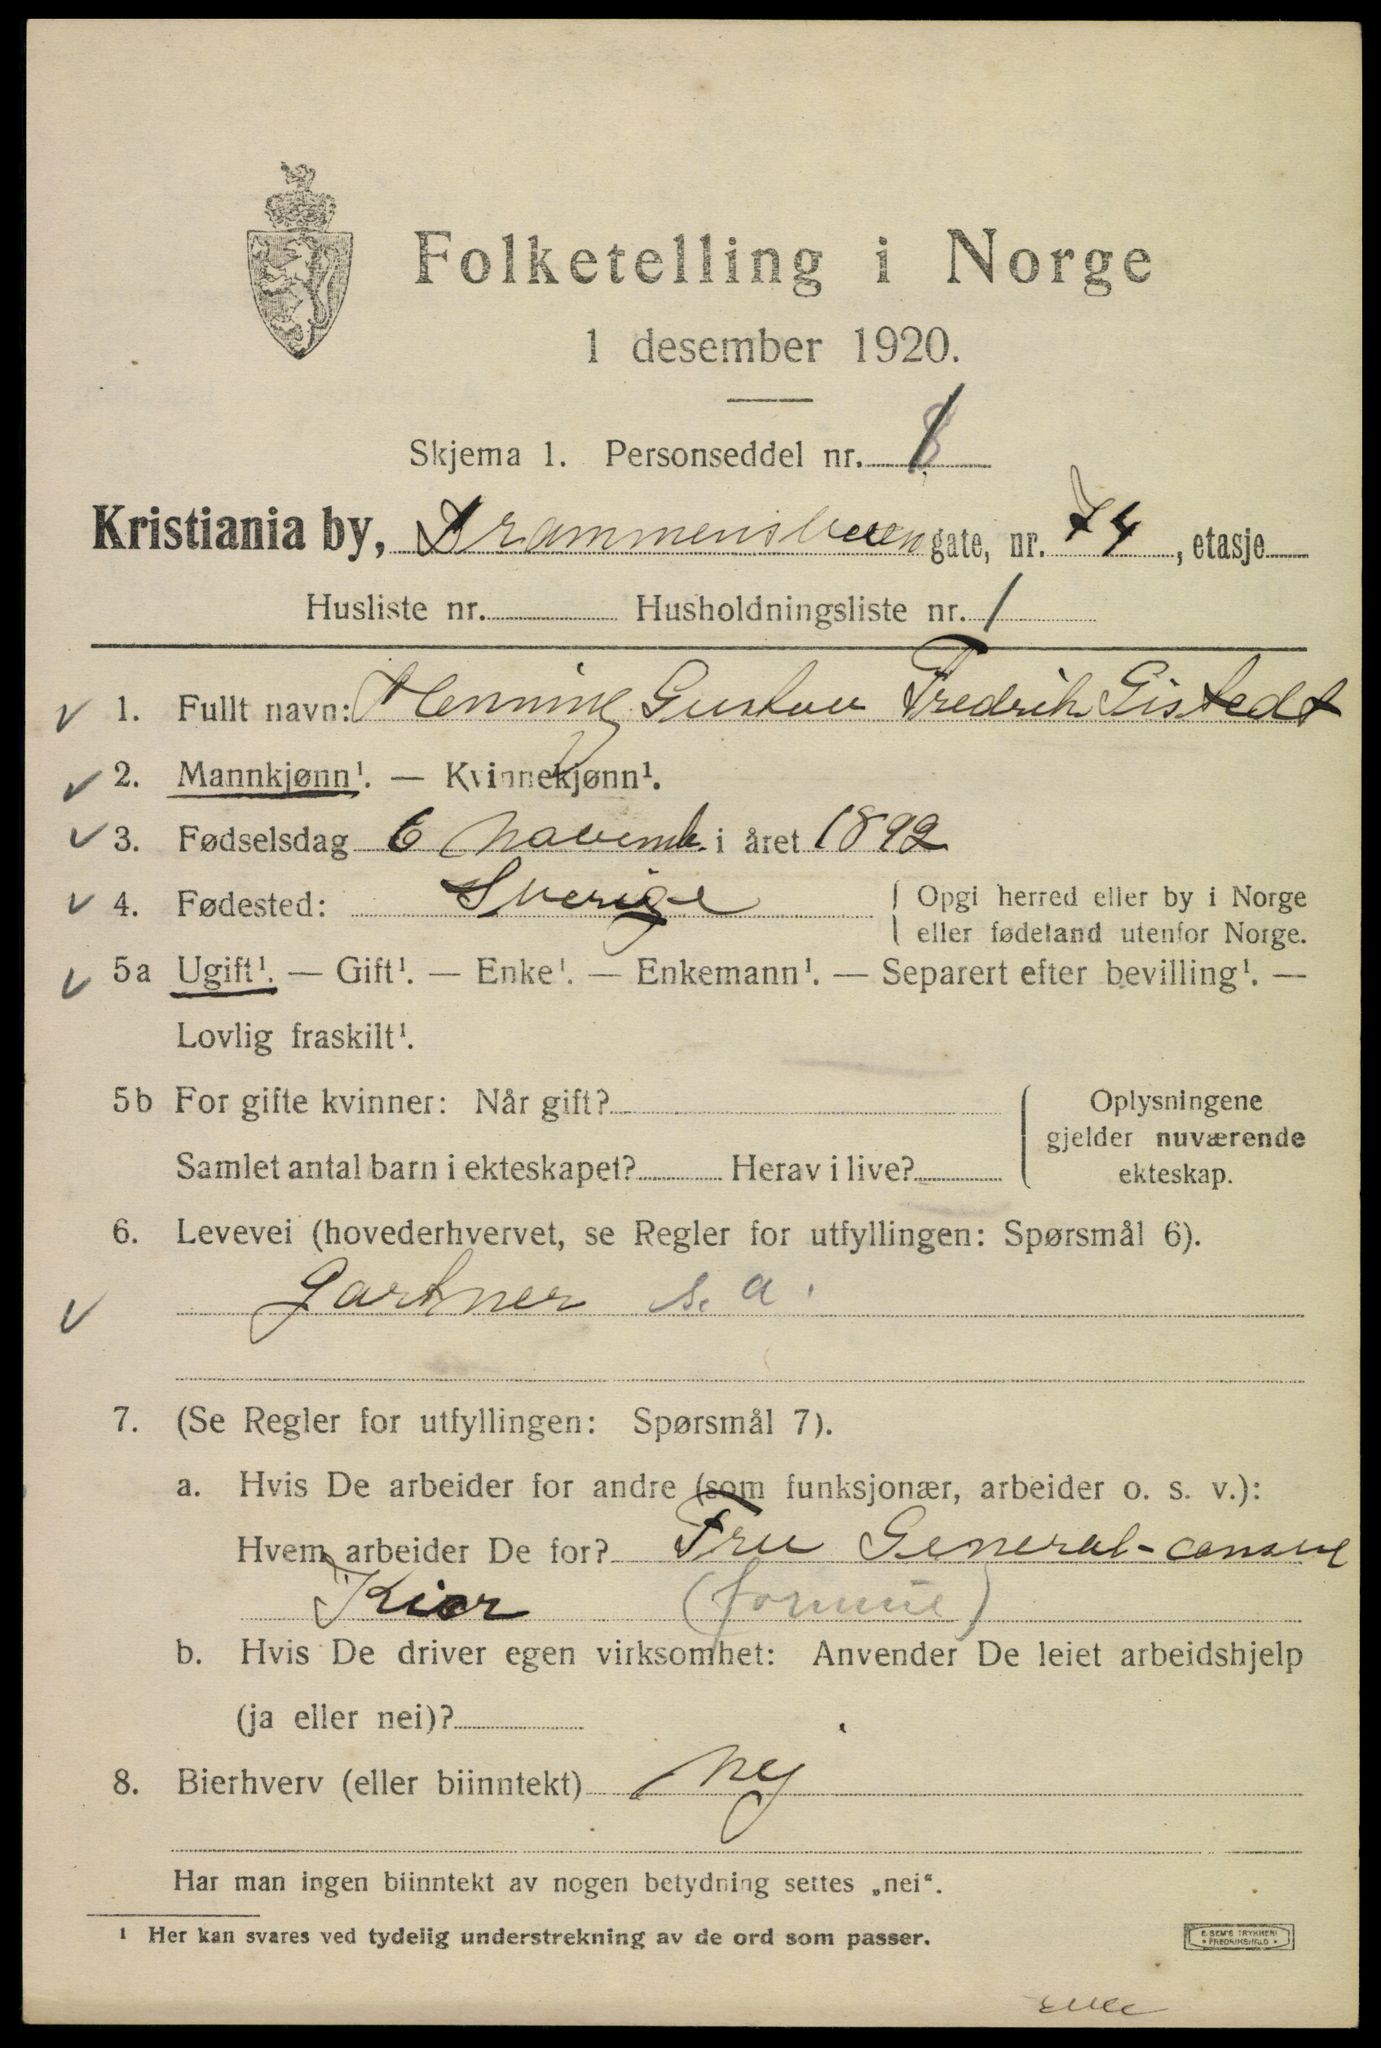 Folketelling i Norge
1 desember 1920.
Skjema 1. Personseddel nr. 1
Kristiania by, Drammensveien gate, nr. 74, etasje
Husliste nr. Husholdningsliste nr. 1
1. Fullt navn: Henning Gustav Fredrik Gistedt
2. Mannkjønn¹. — Kvinnekjønn¹.
3. Fødselsdag 6 novemb. i året 1892
4. Fødested: Sverige { Opgi herred eller by i Norge
eller fødeland utenfor Norge.
5a Ugift¹. — Gift¹. — Enke¹. — Enkemann¹. — Separert efter bevilling¹. —
Lovlig fraskilt¹.
5b For gifte kvinner: Når gift?
Samlet antal barn i ekteskapet? Herav i live?
{ Oplysningene
gjelder nuværende
ekteskap.
6. Levevei (hovederhvervet, se Regler for utfyllingen: Spørsmål 6).
Gartner s. a.
7. (Se Regler for utfyllingen: Spørsmål 7).
a. Hvis De arbeider for andre (som funksjonær, arbeider o. s. v.):
Hvem arbeider De for? Fru General-consul
Kiær (formue)
b. Hvis De driver egen virksomhet: Anvender De leiet arbeidshjelp
(ja eller nei)?
8. Bierhverv (eller biinntekt) nej
Har man ingen biinntekt av nogen betydning settes „nei“.
¹ Her kan svares ved tydelig understrekning av de ord som passer.
E. SEM'S TRYKKERI
* FREDRIKSHALD *